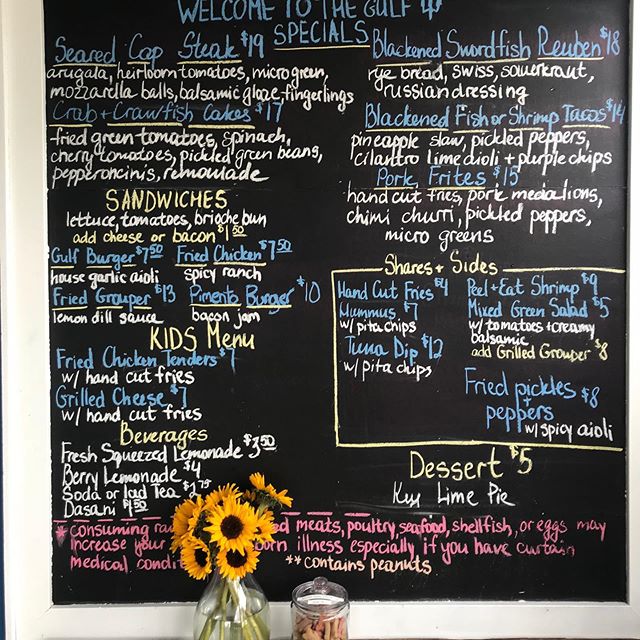 WELCOME TO THE GULF
SPECIALS
Seared Cap Steak $19
arugala, heirloom tomatoes, micro green,
mozzarella balls, balsamic glaze, fingerlings
Crab + Crawfish Cakes $17
fried green tomatoes, spinach,
cherry tomatoes, pickled green beans,
pepperoncinis, remoulade
SANDWICHES
lettuce, tomatoes, brioche bun
add cheese or bacon $1.50
Gulf Burger $7.50 Fried Chicken $7.50
house garlic aioli spicy ranch
Fried Grouper $13 Pimento Burger $10
lemon dill sauce bacon jam
KIDS Menu
Fried Chicken Tenders $7
w/ hand cut fries
Grilled Cheese $7
w/ hand cut fries
Beverages
Fresh Squeezed Lemonade $3.50
Berry Lemonade $4
Soda or Iced Tea $2.75
Dasani $1.50
Blackened Swordfish Reuben $18
rye bread, swiss, sauerkraut,
russian dressing
Blackened Fish or Shrimp Tacos $14
pineapple slaw, pickled peppers,
cilantro lime aioli + purple chips
Pork Frites $15
hand cut fries, pork medallions,
chimi churri, pickled peppers,
micro greens
Shares + Sides
Hand Cut Fries $4
Hummus $7
w/ pita chips
Tuna Dip $12
w/ pita chips
Peel + Eat Shrimp $9
Mixed Green Salad $5
w/ tomatoes + creamy
balsamic
add Grilled Grouper $8
Fried pickles
+
peppers $8
w/ spicy aioli
Dessert $5
Key Lime Pie
*consuming meats, poultry, seafood, shellfish, or eggs may
increase your illness especially if you have curtain
medical
**contains peanuts